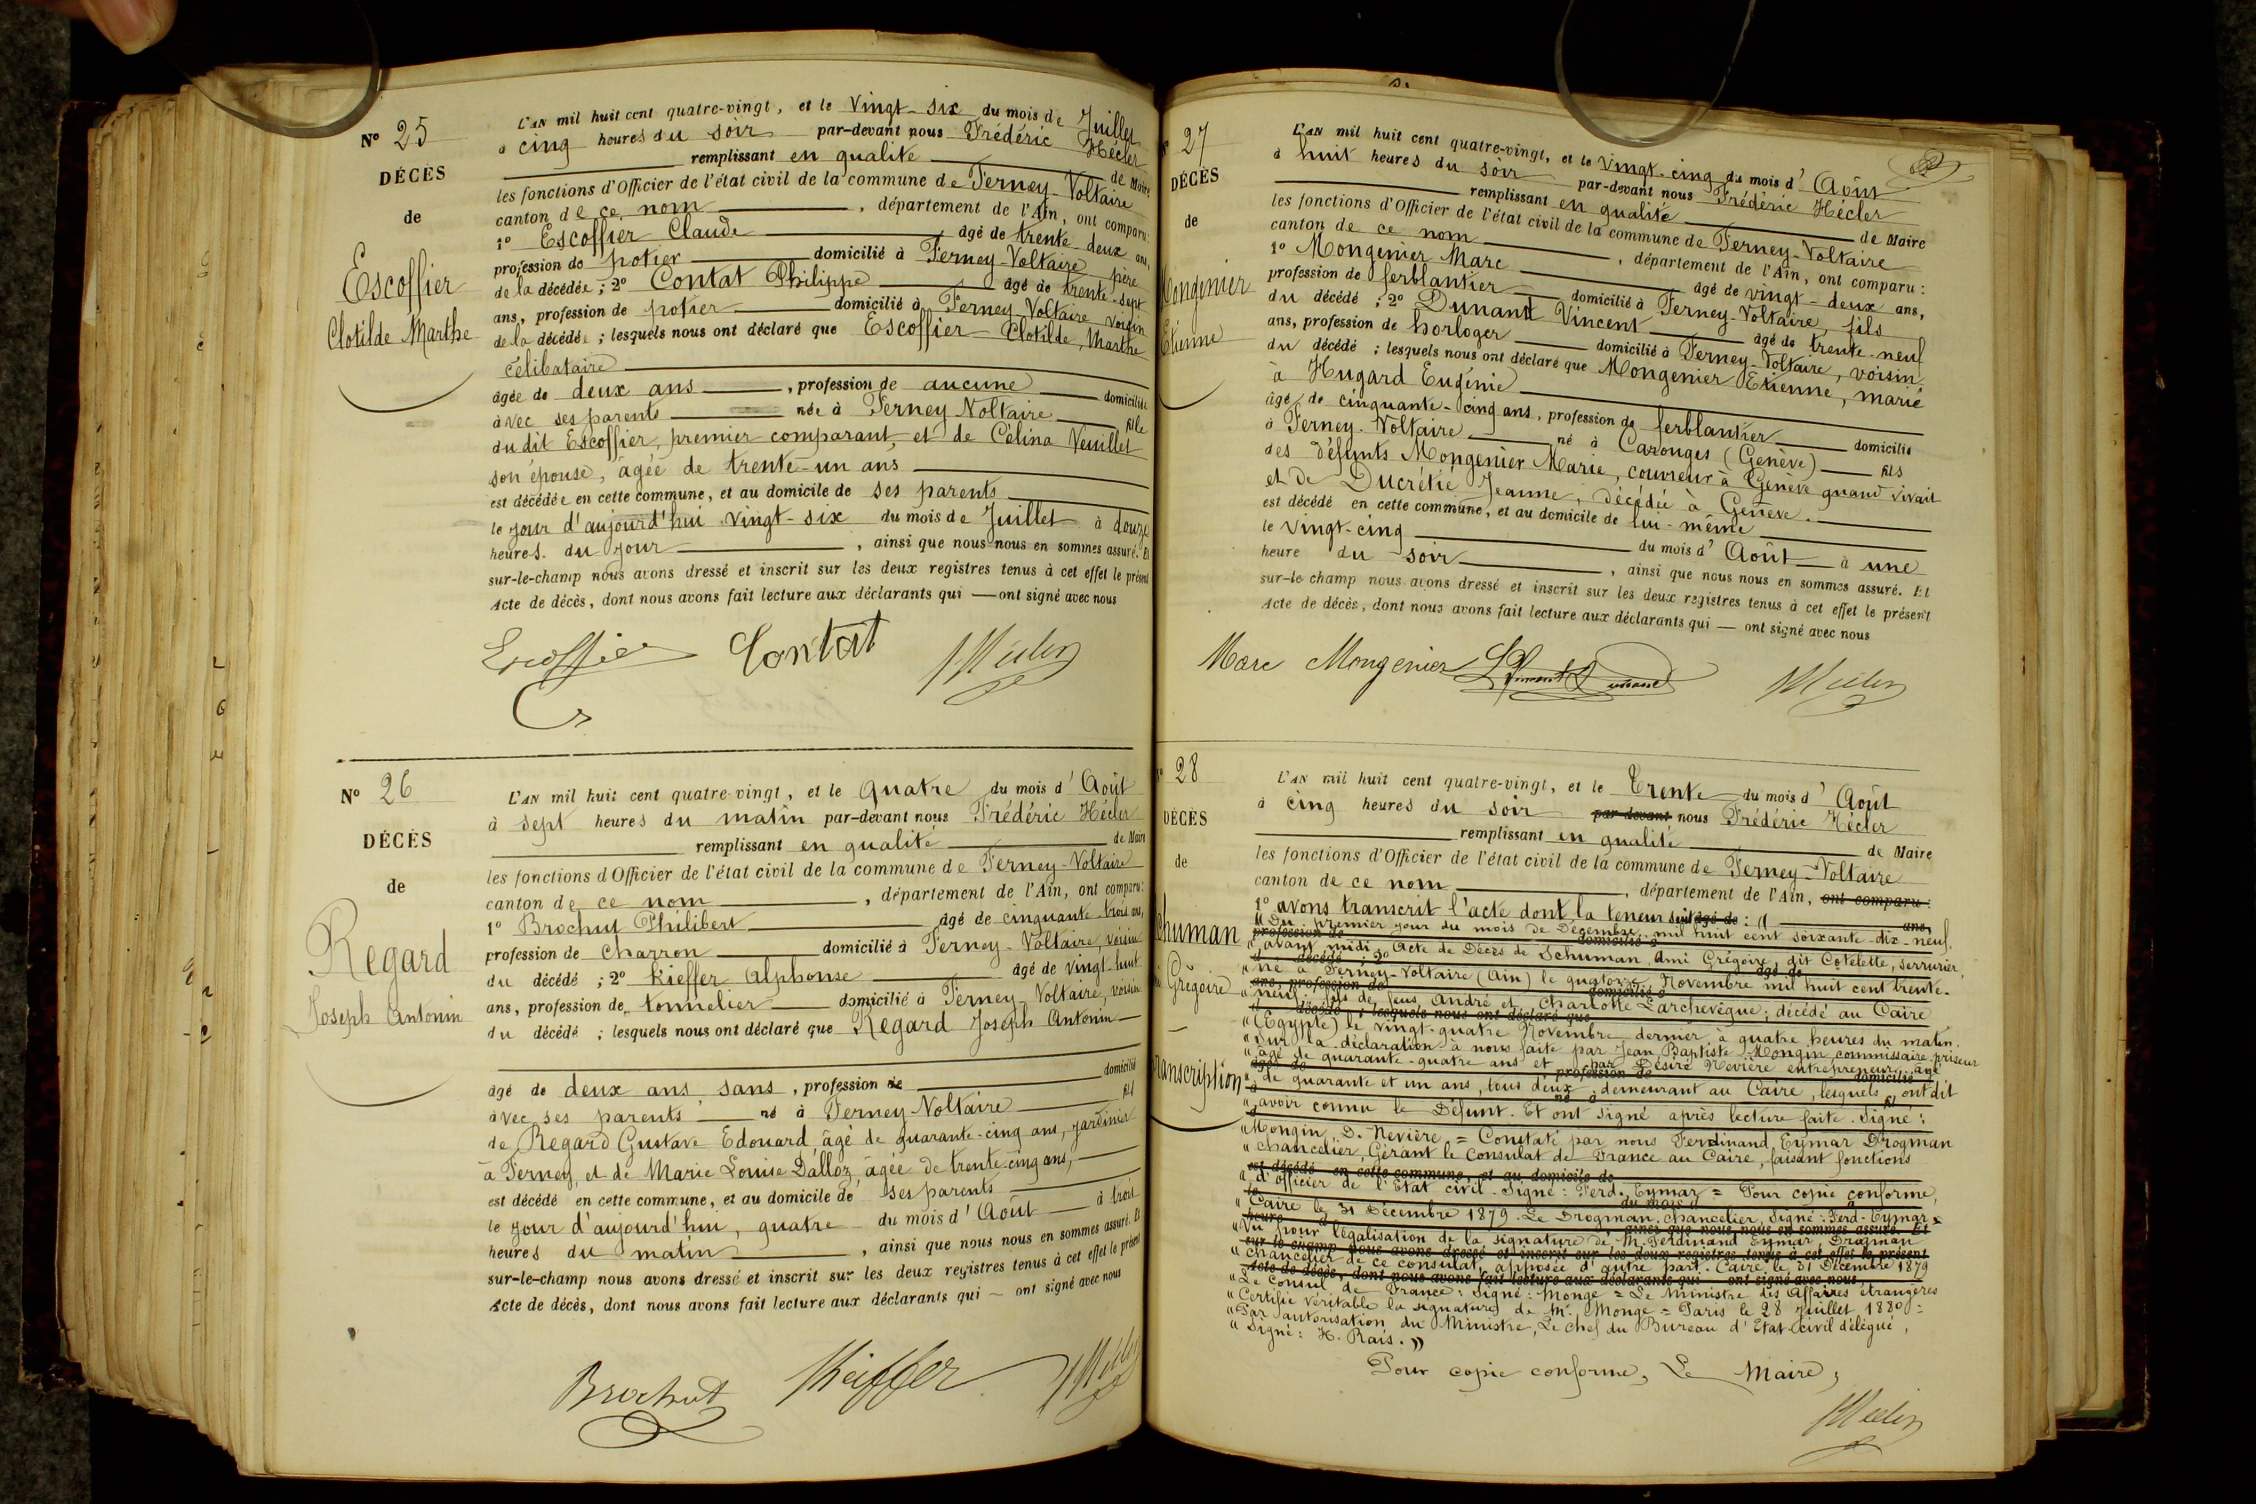 Nº 25
DÉCÈS
de
Escoffier
Clotilde Marthe
L'AN mil huit cent quatre-vingt, et le Vingt-six du mois de Juillet
à cinq heures du soir par-devant nous Frédéric Hécler
remplissant en qualité de Maire
les fonctions d'Officier de l'état civil de la commune de Ferney-Voltaire
canton de ce nom , département de l'Ain, ont comparu:
1º Escoffier Claude âgé de trente-deux ans,
profession de potier domicilié à Ferney-Voltaire père
de la décédée ; 2º Contat Philippe âgé de trente-sept
ans, profession de potier domicilié à Ferney-Voltaire voisin
de la décédée ; lesquels nous ont déclaré que Escoffier Clotilde, Marthe
célibataire
âgée de deux ans , profession de aucune domiciliée
avec ses parents née à Ferney Voltaire fille
du dit Escoffier, premier comparant, et de Célina Veuillet
son épouse, âgée de trente-un ans
est décédée en cette commune, et au domicile de ses parents
le jour d'aujourd'hui vingt-six du mois de Juillet à douze
heures du jour , ainsi que nous nous en sommes assuré. Et
sur-le-champ nous avons dressé et inscrit sur les deux registres tenus à cet effet le présent
Acte de décès, dont nous avons fait lecture aux déclarants qui — ont signé avec nous
Escoffier Contat Hécler
Nº 26
DÉCÈS
de
Regard
Joseph Antonin
L'AN mil huit cent quatre-vingt, et le Quatre du mois d'Août
à sept heures du matin par-devant nous Frédéric Hécler
remplissant en qualité de Maire
les fonctions d'Officier de l'état civil de la commune de Ferney-Voltaire
canton de ce nom , département de l'Ain, ont comparu:
1º Brochut Philibert âgé de cinquante-trois ans,
profession de charron domicilié à Ferney-Voltaire, voisin
du décédé ; 2º Kieffer Alphonse âgé de vingt-huit
ans, profession de tonnelier domicilié à Ferney Voltaire, voisin
du décédé ; lesquels nous ont déclaré que Regard Joseph Antonin
âgé de deux ans, sans , profession de domicilié
avec ses parents né à Ferney-Voltaire fils
de Regard Gustave Edouard âgé de quarante-cinq ans, jardinier
à Ferney, et de Marie Louise Dalloz, âgée de trente-cinq ans,
est décédé en cette commune, et au domicile de ses parents
le jour d'aujourd'hui, quatre du mois d'Août à trois
heures du matin , ainsi que nous nous en sommes assuré. Et
sur-le-champ nous avons dressé et inscrit sur les deux registres tenus à cet effet le présent
Acte de décès, dont nous avons fait lecture aux déclarants qui — ont signé avec nous
Brochut Kieffer Hécler
27
DÉCÈS
de
Mongenier
Etienne
L'AN mil huit cent quatre-vingt, et le Vingt-cinq du mois d'Août
à huit heures du soir par-devant nous Frédéric Hécler
remplissant en qualité de Maire
les fonctions d'Officier de l'état civil de la commune de Ferney-Voltaire
canton de ce nom , département de l'Ain, ont comparu :
1º Mongenier Marc âgé de vingt-deux ans,
profession de ferblantier domicilié à Ferney-Voltaire, fils
du décédé ; 2º Dunant Vincent âgé de trente-neuf
ans, profession de horloger domicilié à Ferney-Voltaire, voisin
du décédé ; lesquels nous ont déclaré que Mongenier Etienne, marié
à Hugard Eugénie
âgé de cinquante-cinq ans, profession de ferblantier domicilié
à Ferney-Voltaire né à Carouges (Genève) fils
des défunts Mongenier Marie, couvreur à Genève quand vivait
et de Ducrétié Jeanne, décédée à Genève.
est décédé en cette commune, et au domicile de lui-même
le vingt-cinq du mois d'Août à une
heure du soir , ainsi que nous nous en sommes assuré. Et
sur-le champ nous avons dressé et inscrit sur les deux registres tenus à cet effet le présent
Acte de décès, dont nous avons fait lecture aux déclarants qui — ont signé avec nous
Marc Mongenier Vincent Dunand Hécler
28
DÉCÈS
de
Schuman
Grégoire
Transcription
L'AN mil huit cent quatre-vingt, et le Trente du mois d'Août
à cinq heures du soir par-devant nous Frédéric Hécler
remplissant en qualité de Maire
les fonctions d'Officier de l'état civil de la commune de Ferney-Voltaire
canton de ce nom , département de l'Ain, ont comparu :
1º avons transcrit l'acte dont la teneur suit : «
" Du premier jour du mois de Décembre mil huit cent soixante-dix-neuf,
" avant midi. Acte de Décès de Schuman, Ami Grégoire, dit Cotelette, serrurier,
" né à Ferney-Voltaire (Ain) le quatorze Novembre mil huit cent trente-
" neuf, fils de feus André et Charlotte Larchevêque; décédé au Caire
" (Egypte) le vingt-quatre Novembre dernier à quatre heures du matin.
" Sur la déclaration à nous faite par Jean Baptiste Mongin commissaire priseur
" âgé de quarante-quatre ans et par Désiré Nevière entrepreneur, âgé
" de quarante et un ans, tous deux demeurant au Caire, lesquels ont dit
" avoir connu le Défunt. Et ont signé après lecture faite. Signé :
" Mongin, D. Nevière = Constaté par nous Ferdinand Eymar Drogman
" chancelier, Gérant le Consulat de France au Caire, faisant fonctions
" d'officier de l'Etat civil. Signé : Ferd. Eymar = Pour copie conforme,
" Caire le 31 Décembre 1879. Le Drogman chancelier, Signé : Ferd. Eymar =
" Vu pour légalisation de la signature de M. Ferdinand Eymar, Drogman
" chancelier de ce consulat, apposée d'autre part. Caire, le 31 Décembre 1879
" Le Consul de France : Signé : Monge = Le Ministre des Affaires étrangères
" Certifie véritable la signature de Mr. Monge = Paris le 28 Juillet 1880 =
" Par autorisation du Ministre, Le chef du Bureau d'Etat-civil délégué,
" Signé : H. Rais. »
Pour copie conforme, Le Maire,
Hécler